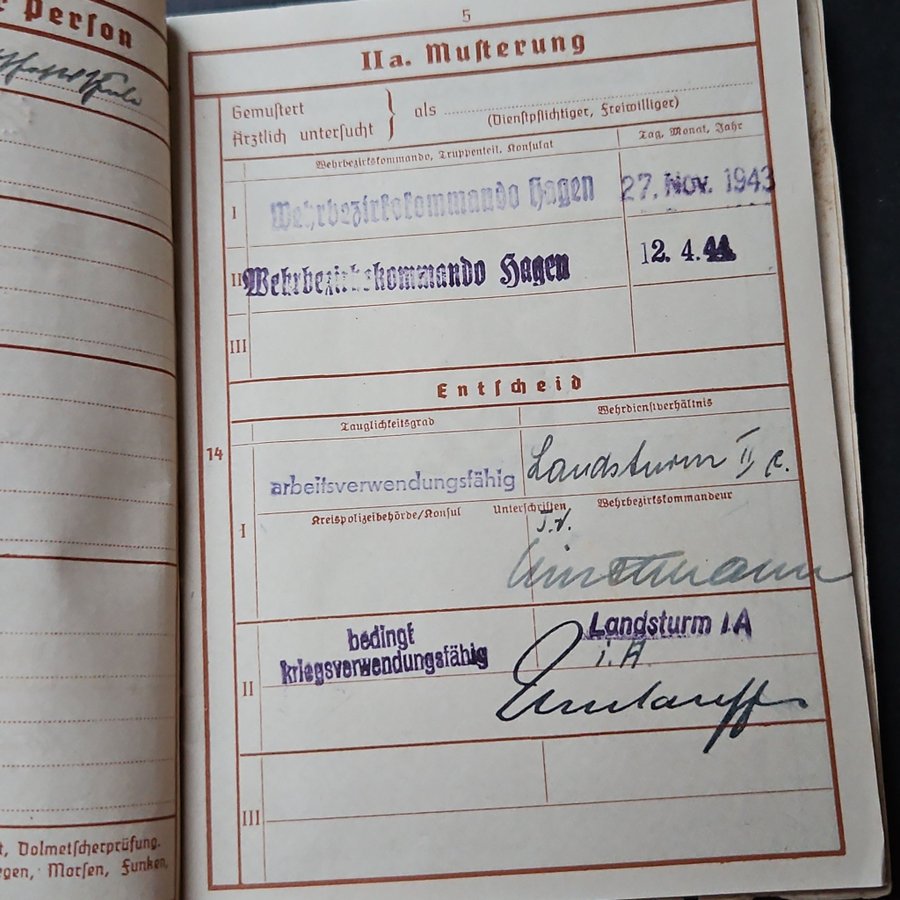 Person
5
IIa. Musterung
Gemustert
Ärztlich untersucht
als
(Dienstpflichtiger, Freiwilliger)
Wehrbezirkskommando, Truppenteil, Konsulat
Tag, Monat, Jahr
I
Wehrbezirkskommando Hagen
27. Nov. 1943
II
Wehrbezirkskommando Hagen
12. 4. 44
III
Entscheid
Tauglichkeitsgrad
Wehrdienstverhältnis
14
I
arbeitsverwendungsfähig
Landsturm II
Kreispolizeibehörde/Konsul
Unterschriften
Wehrbezirkskommandeur
II
bedingt
kriegsverwendungsfähig
Landsturm I A
i. A.
III
Dolmetscherprüfung.
Morsen, Funken,